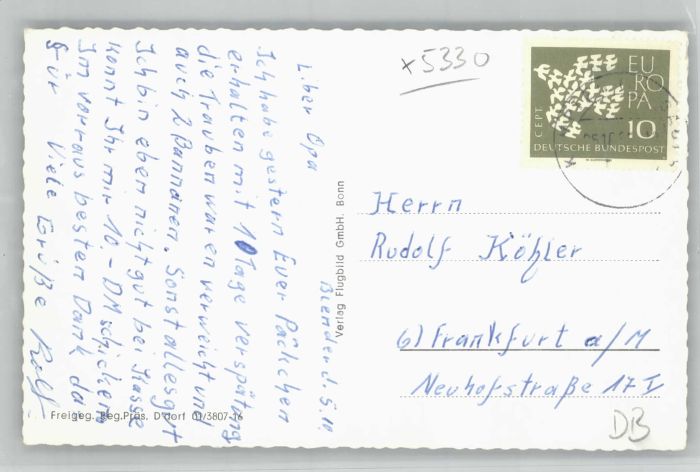 x5330
EUROPA
CEPT
10
DEUTSCHE BUNDESPOST
Liber Opa
Ich habe gestern Euer Päckchen
erhalten mit 10 Tage verspätung
die Trauben waren verweicht und
auch 2 Bannanen. Sonst alles gut
Ich bin eben nicht gut bei Kasse
könnt Ihr mir 10-DM schicken
Im vorraus besten Dank da
für Viele Grüße Rolf
d. 5.10.
Verlag Flugbild GmbH. Bonn
Herrn
Rudolf Köhler
6) Frankfurt a/M
Neuhofstraße 17 I
Freigeg. Reg.Präs. D'dorf 01/3807-16
DB